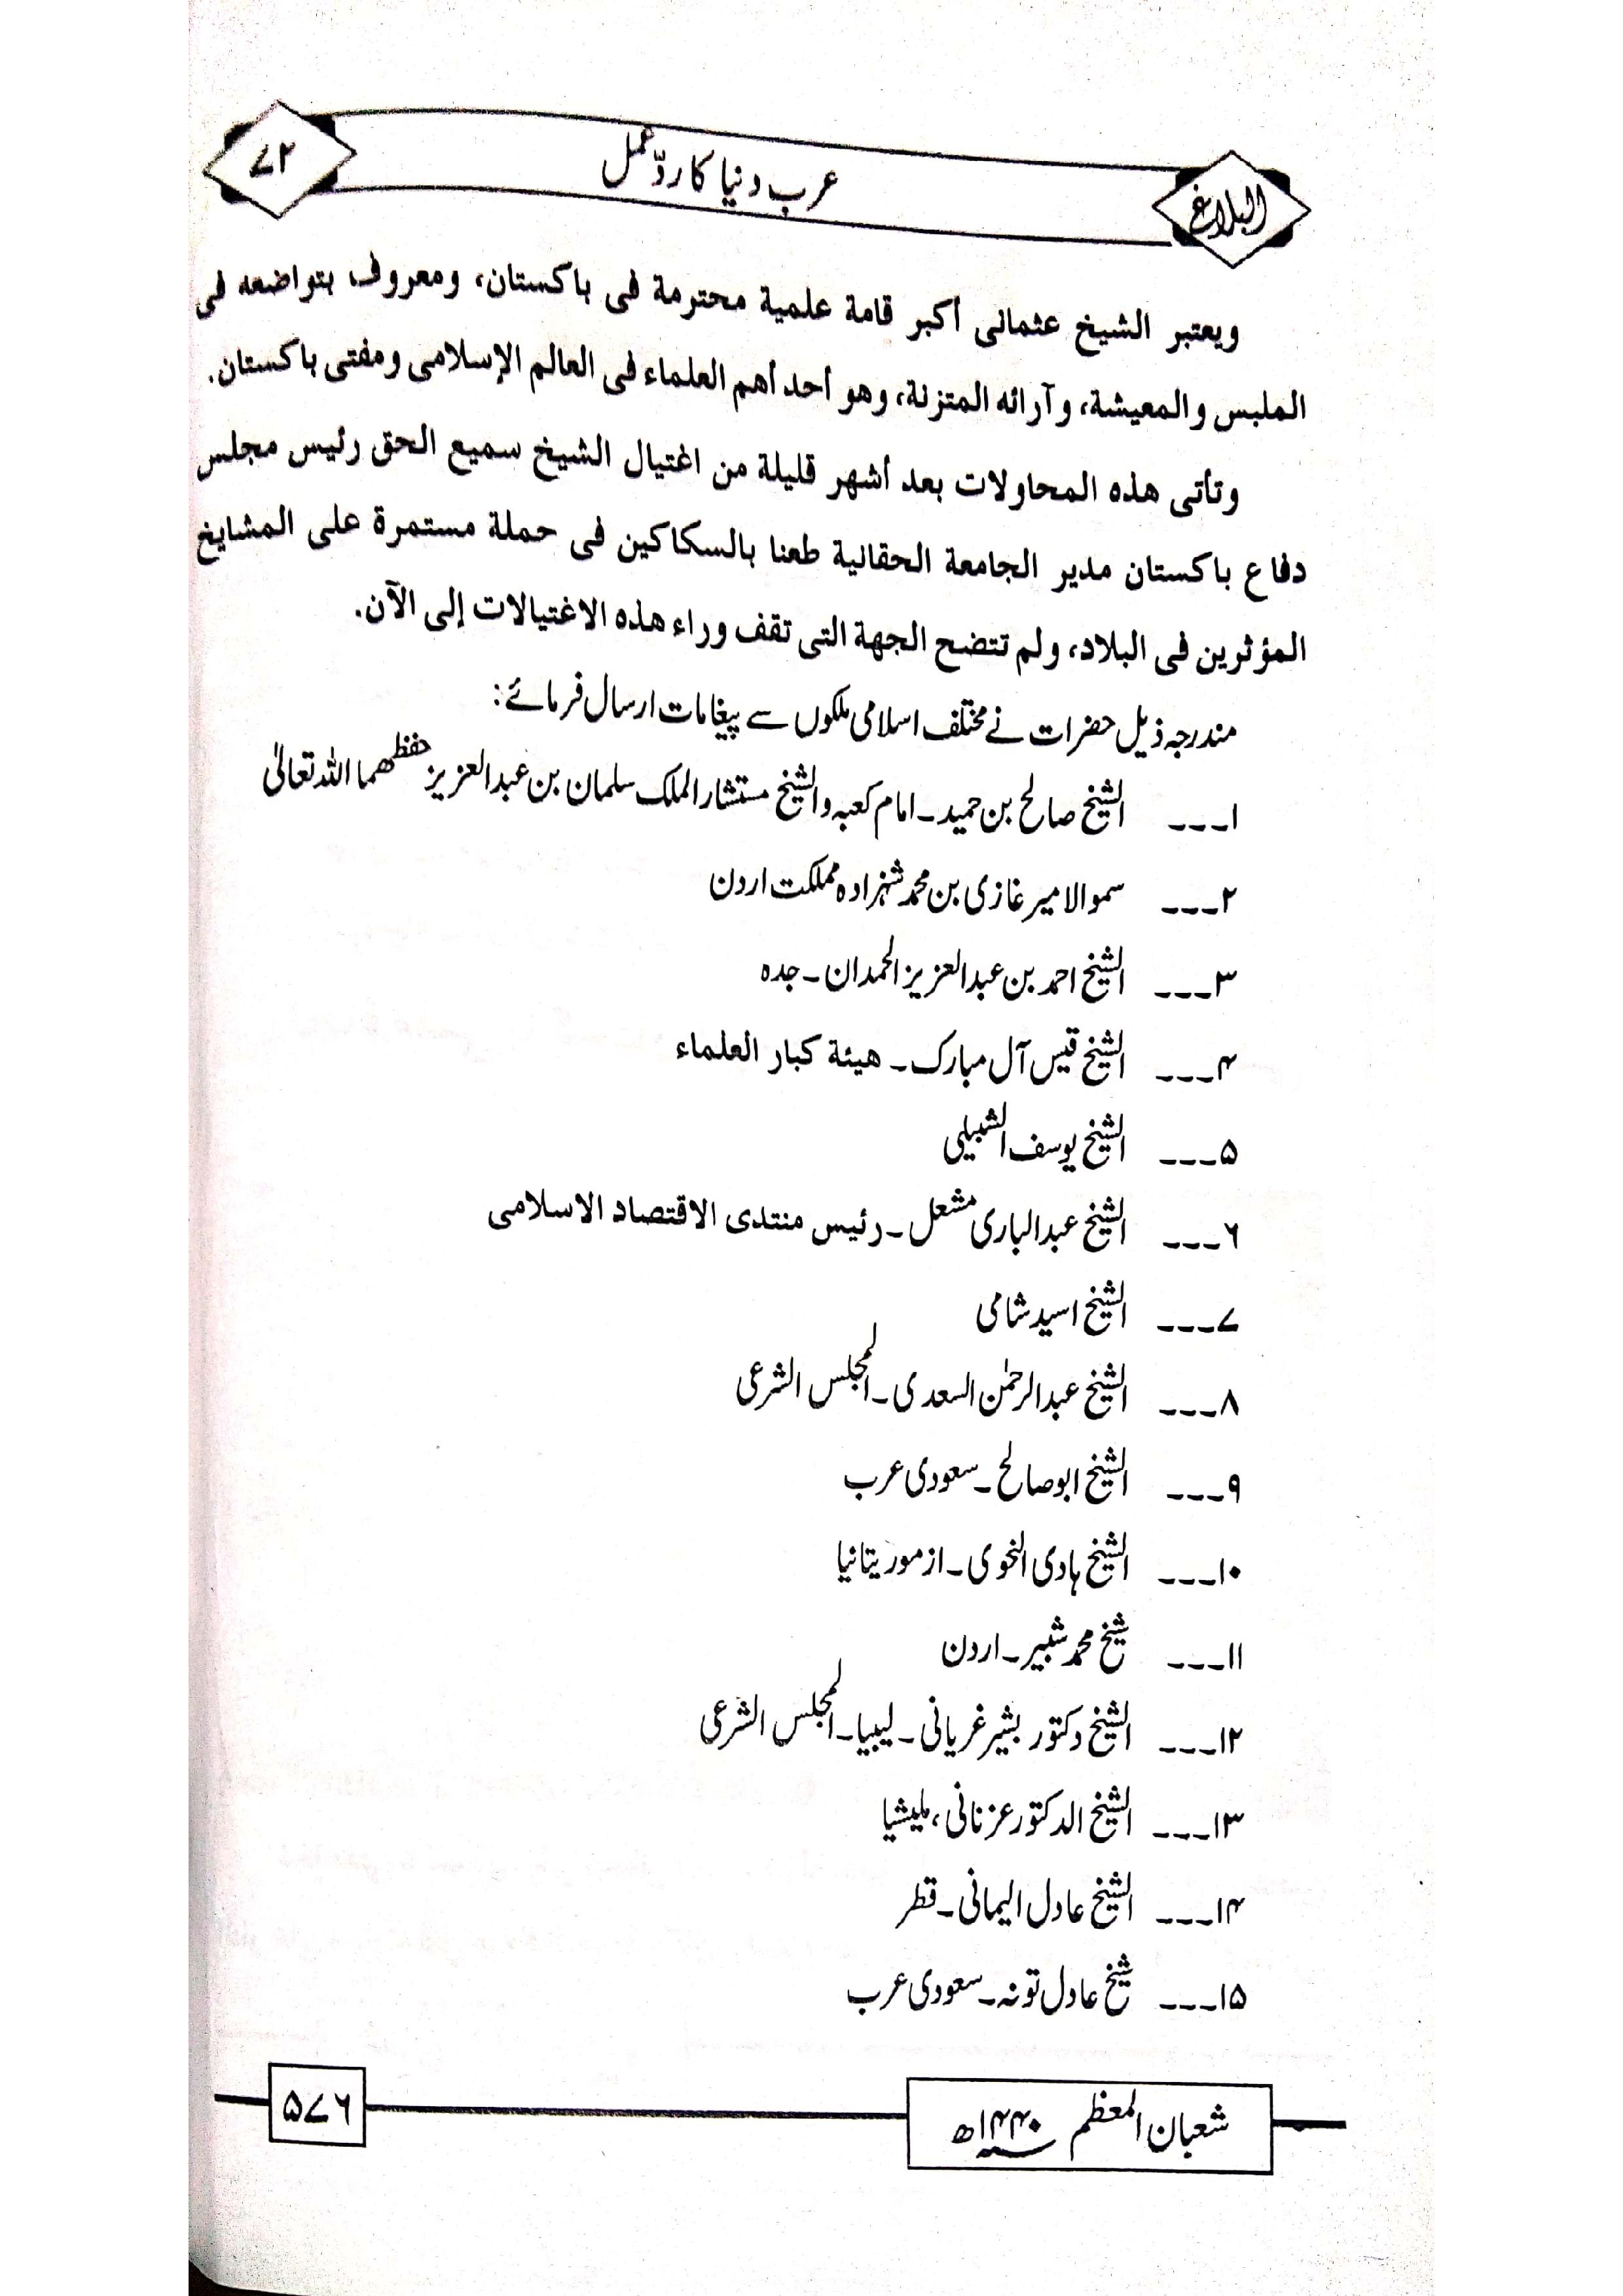 البلاغ
عرب دنیا کا ردّعمل
۷۲
ويعتبر الشيخ عثمانى أكبر قامة علمية محترمة فى باكستان، ومعروف بتواضعه فى
الملبس والمعيشة، وآرائه المتزنة، وهو أحد أهم العلماء فى العالم الإسلامى ومفتى باكستان.
وتأتى هذه المحاولات بعد أشهر قليلة من اغتيال الشيخ سميع الحق رئيس مجلس
دفاع باكستان مدير الجامعة الحقانية طعنا بالسكاكين فى حملة مستمرة على المشايخ
المؤثرين فى البلاد، ولم تتضح الجهة التى تقف وراء هذه الاغتيالات إلى الآن.
مندرجہ ذیل حضرات نے مختلف اسلامی ملکوں سے پیغامات ارسال فرمائے:
۱۔۔۔ الشیخ صالح بن حمید۔ امام کعبہ والشیخ مستشار الملک سلمان بن عبدالعزیز حفظھما اللہ تعالیٰ
۲۔۔۔ سموالامیر غازی بن محمد شہزادہ مملکت اردن
۳۔۔۔ الشیخ احمد بن عبدالعزیز الحمدان۔ جدہ
۴۔۔۔ الشیخ قیس آل مبارک۔ هيئة كبار العلماء
۵۔۔۔ الشیخ یوسف الشبیلی
۶۔۔۔ الشیخ عبدالباری مشعل۔ رئيس منتدى الاقتصاد الاسلامى
۷۔۔۔ الشیخ اسید شامی
۸۔۔۔ الشیخ عبدالرحمٰن السعدی۔ المجلس الشرعی
۹۔۔۔ الشیخ ابوصالح۔ سعودی عرب
۱۰۔۔۔ الشیخ ہادی النحوی۔ از موریتانیا
۱۱۔۔۔ شیخ محمد شبیر۔ اردن
۱۲۔۔۔ الشیخ دکتور بشیر غریانی۔ لیبیا۔ المجلس الشرعی
۱۳۔۔۔ الشیخ الدکتور عزنانی، ملیشیا
۱۴۔۔۔ الشیخ عادل الیمانی۔ قطر
۱۵۔۔۔ شیخ عادل تونہ۔ سعودی عرب
شعبان المعظم ۱۴۴۰ھ
۵۷۶